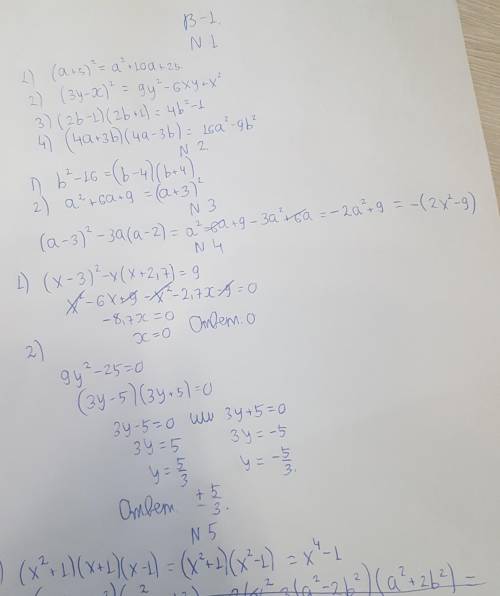 В-1.
N 1
1) (a+5)²=a²+10a+25.
2) (3y-x)² = 9y²-6xy+x²
3) (2b-1)(2b+1)=4b²-1
4) (4a+3b)(4a-3b)=16a²-9b²
N 2.
1) b²-16=(b-4)(b+4)
2) a²+6a+9=(a+3)²
N 3
(a-3)²-3a(a-2)=a²-6a+9-3a²+6a=-2a²+9=-(2x²-9)
N 4
1) (x-3)²-x(x+2,7)=9
x²-6x+9-x²-2,7x-9=0
-8,7x=0
x=0 Ответ: 0
2)
9y²-25=0
(3y-5)(3y+5)=0
3y-5=0 или 3y+5=0
3y=5 3y=-5
y=5/3 y=-5/3.
Ответ: ±5/3.
N 5
) (x²+1)(x+1)(x-1)=(x²+1)(x²-1)=x⁴-1
(a²-2b²)(a²+2b²)=